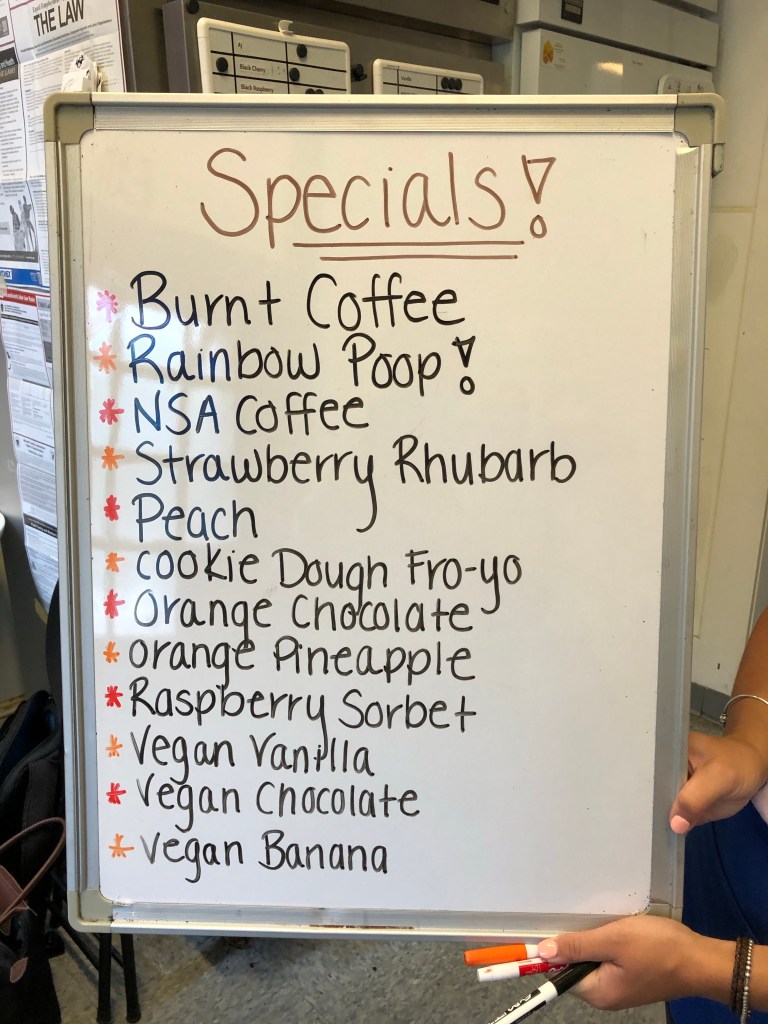 THE LAW
AJ
Black Cherry
Black Raspberry
Vanilla
Specials!
* Burnt Coffee
* Rainbow Poop!
* NSA Coffee
* Strawberry Rhubarb
* Peach
* cookie Dough Fro-yo
* Orange Chocolate
* orange Pineapple
* Raspberry Sorbet
* Vegan Vanilla
* Vegan Chocolate
* Vegan Banana
EXPO